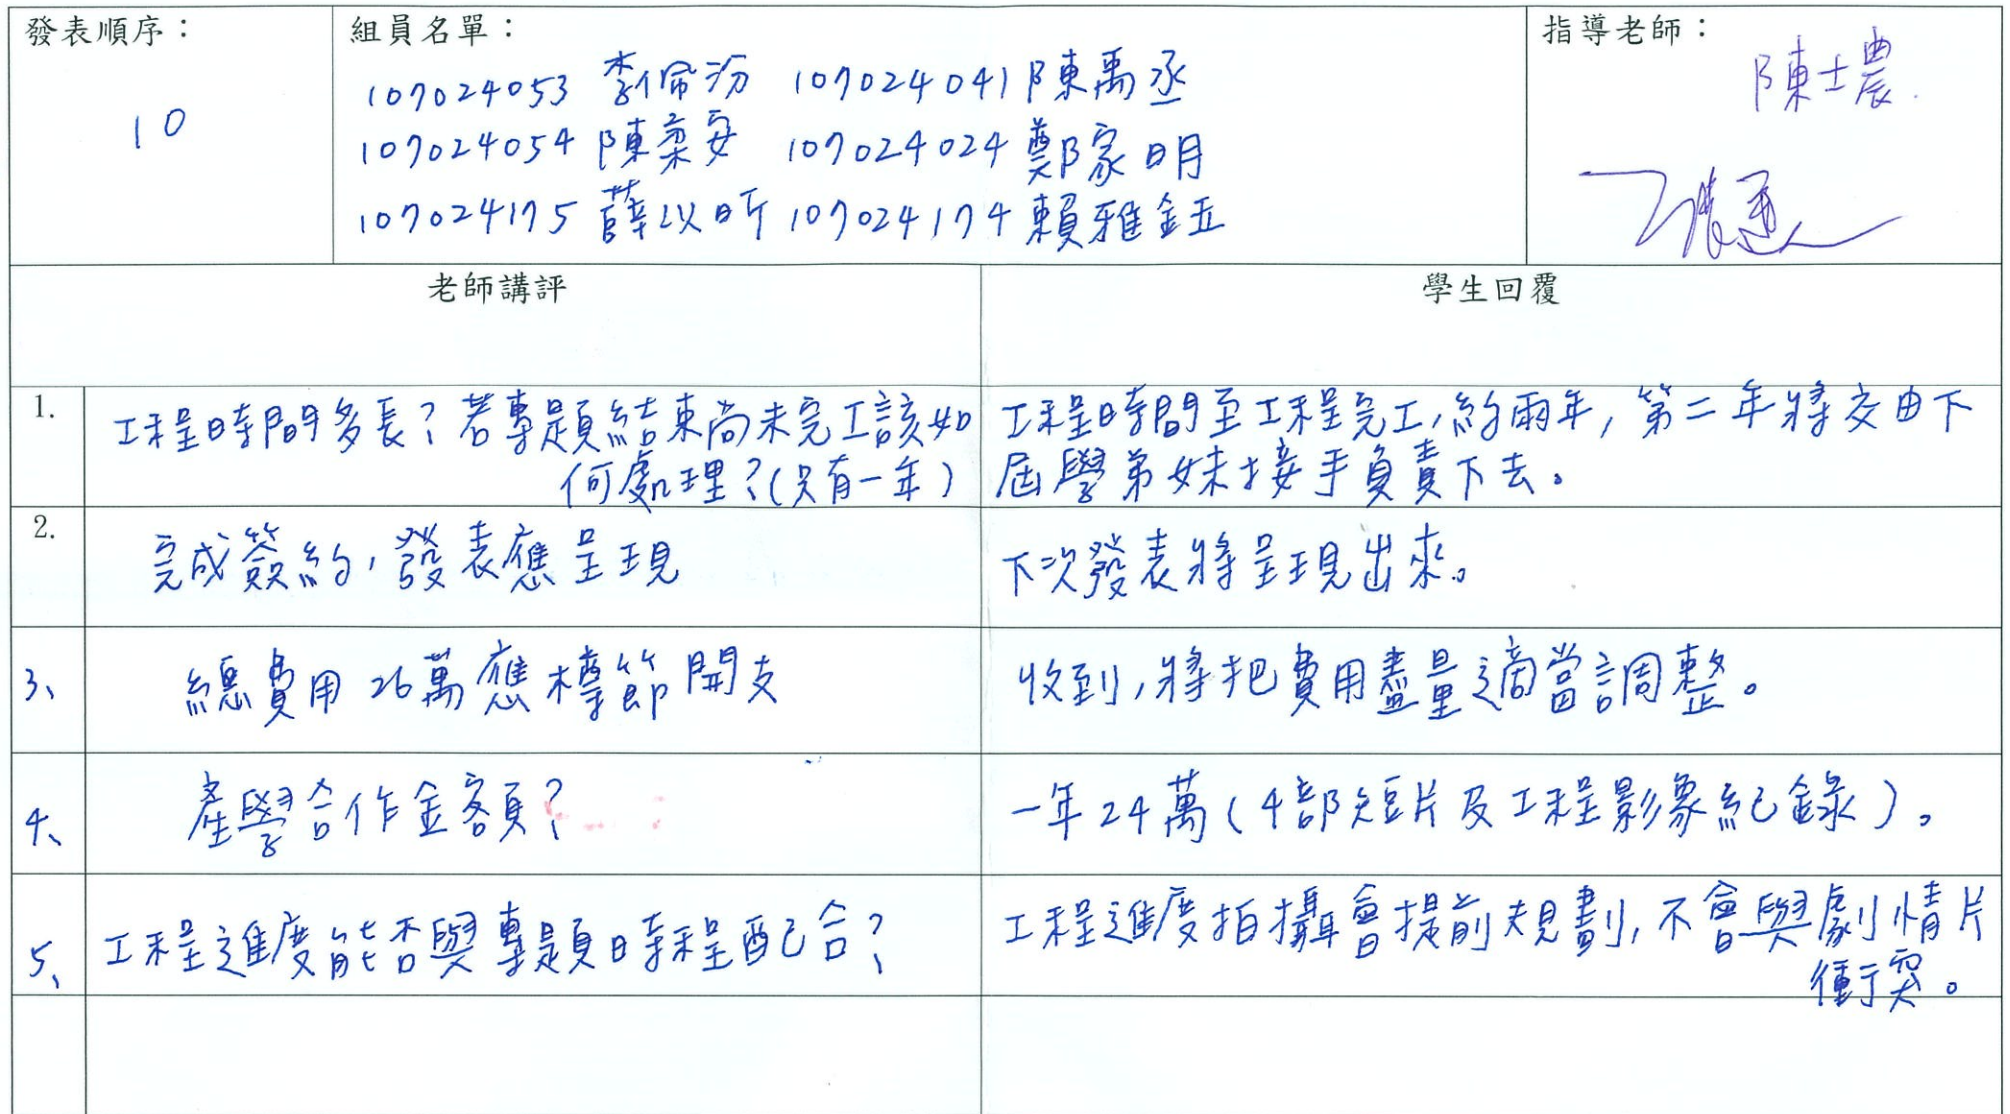 發表順序：
10
組員名單：
107024053 李佩汾 107024041 陳禹丞
107024054 陳柔安 107024024 鄭家明
107024175 薛以昕 107024174 賴雅鈺
指導老師：
陳士農
老師講評 學生回覆
1. 工程時間多長？若專題結束尚未完工該如
何處理？(只有一年)
工程時間至工程完工，約兩年，第二年將交由下
屆學弟妹接手負責下去。
2. 完成簽約，發表應呈現
下次發表將呈現出來。
3、 總費用26萬應樽節開支
收到，將把費用盡量適當調整。
4、 產學合作金額？
一年24萬(4部短片及工程影象紀錄)。
5、 工程進度能否與專題時程配合？
工程進度拍攝會提前規劃，不會與劇情片
衝突。